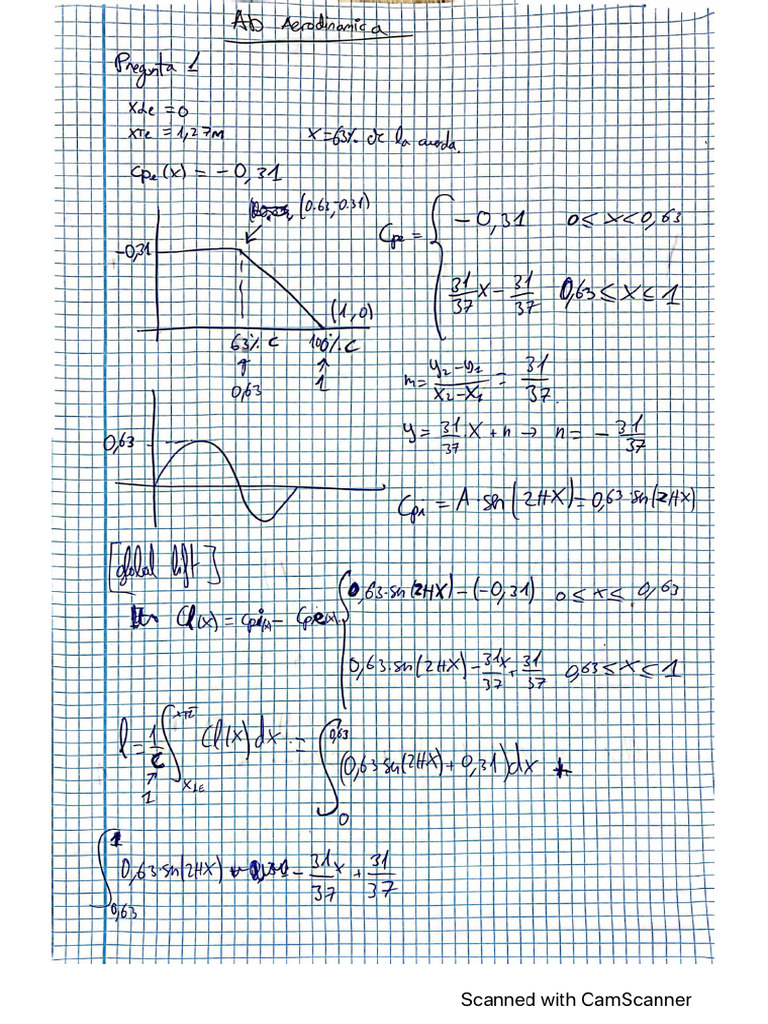 AD Aerodinamica
Pregunta 1
XLe = 0
XTe = 1,27m
X=63% de la cuerda.
Cpe(x) = -0,31
(0.63,-0.31)
-0,31
(1,0)
63% C
100% C
0,63
1
Cpe = { -0,31 0≤x<0,63
31/37 x - 31/37 0,63≤x≤1
m = (y2-y1)/(x2-x1) = 31/37
y = 31/37 x + n → n = -31/37
0,63
Cpi = A·sn(2πx) = 0,63·sn(2πx)
[global lift]
Cl(x) = Cpi(x) - Cpe(x) { 0,63·sn(2πx) - (-0,31) 0≤x≤0,63
0,63·sn(2πx) - 31x/37 + 31/37 0,63≤x≤1
l = 1/c ∫ XTE XLE Cl(x)dx = ∫ 0,63 0 (0,63·sn(2πx)+0,31)dx +
1
∫ 1 0,63 0,63·sn(2πx) - 31/37 x + 31/37
Scanned with CamScanner